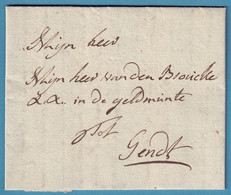 Mijn heer
Mijn heer van den Broucke
&a. in de geldmunte
Tot
Gendt